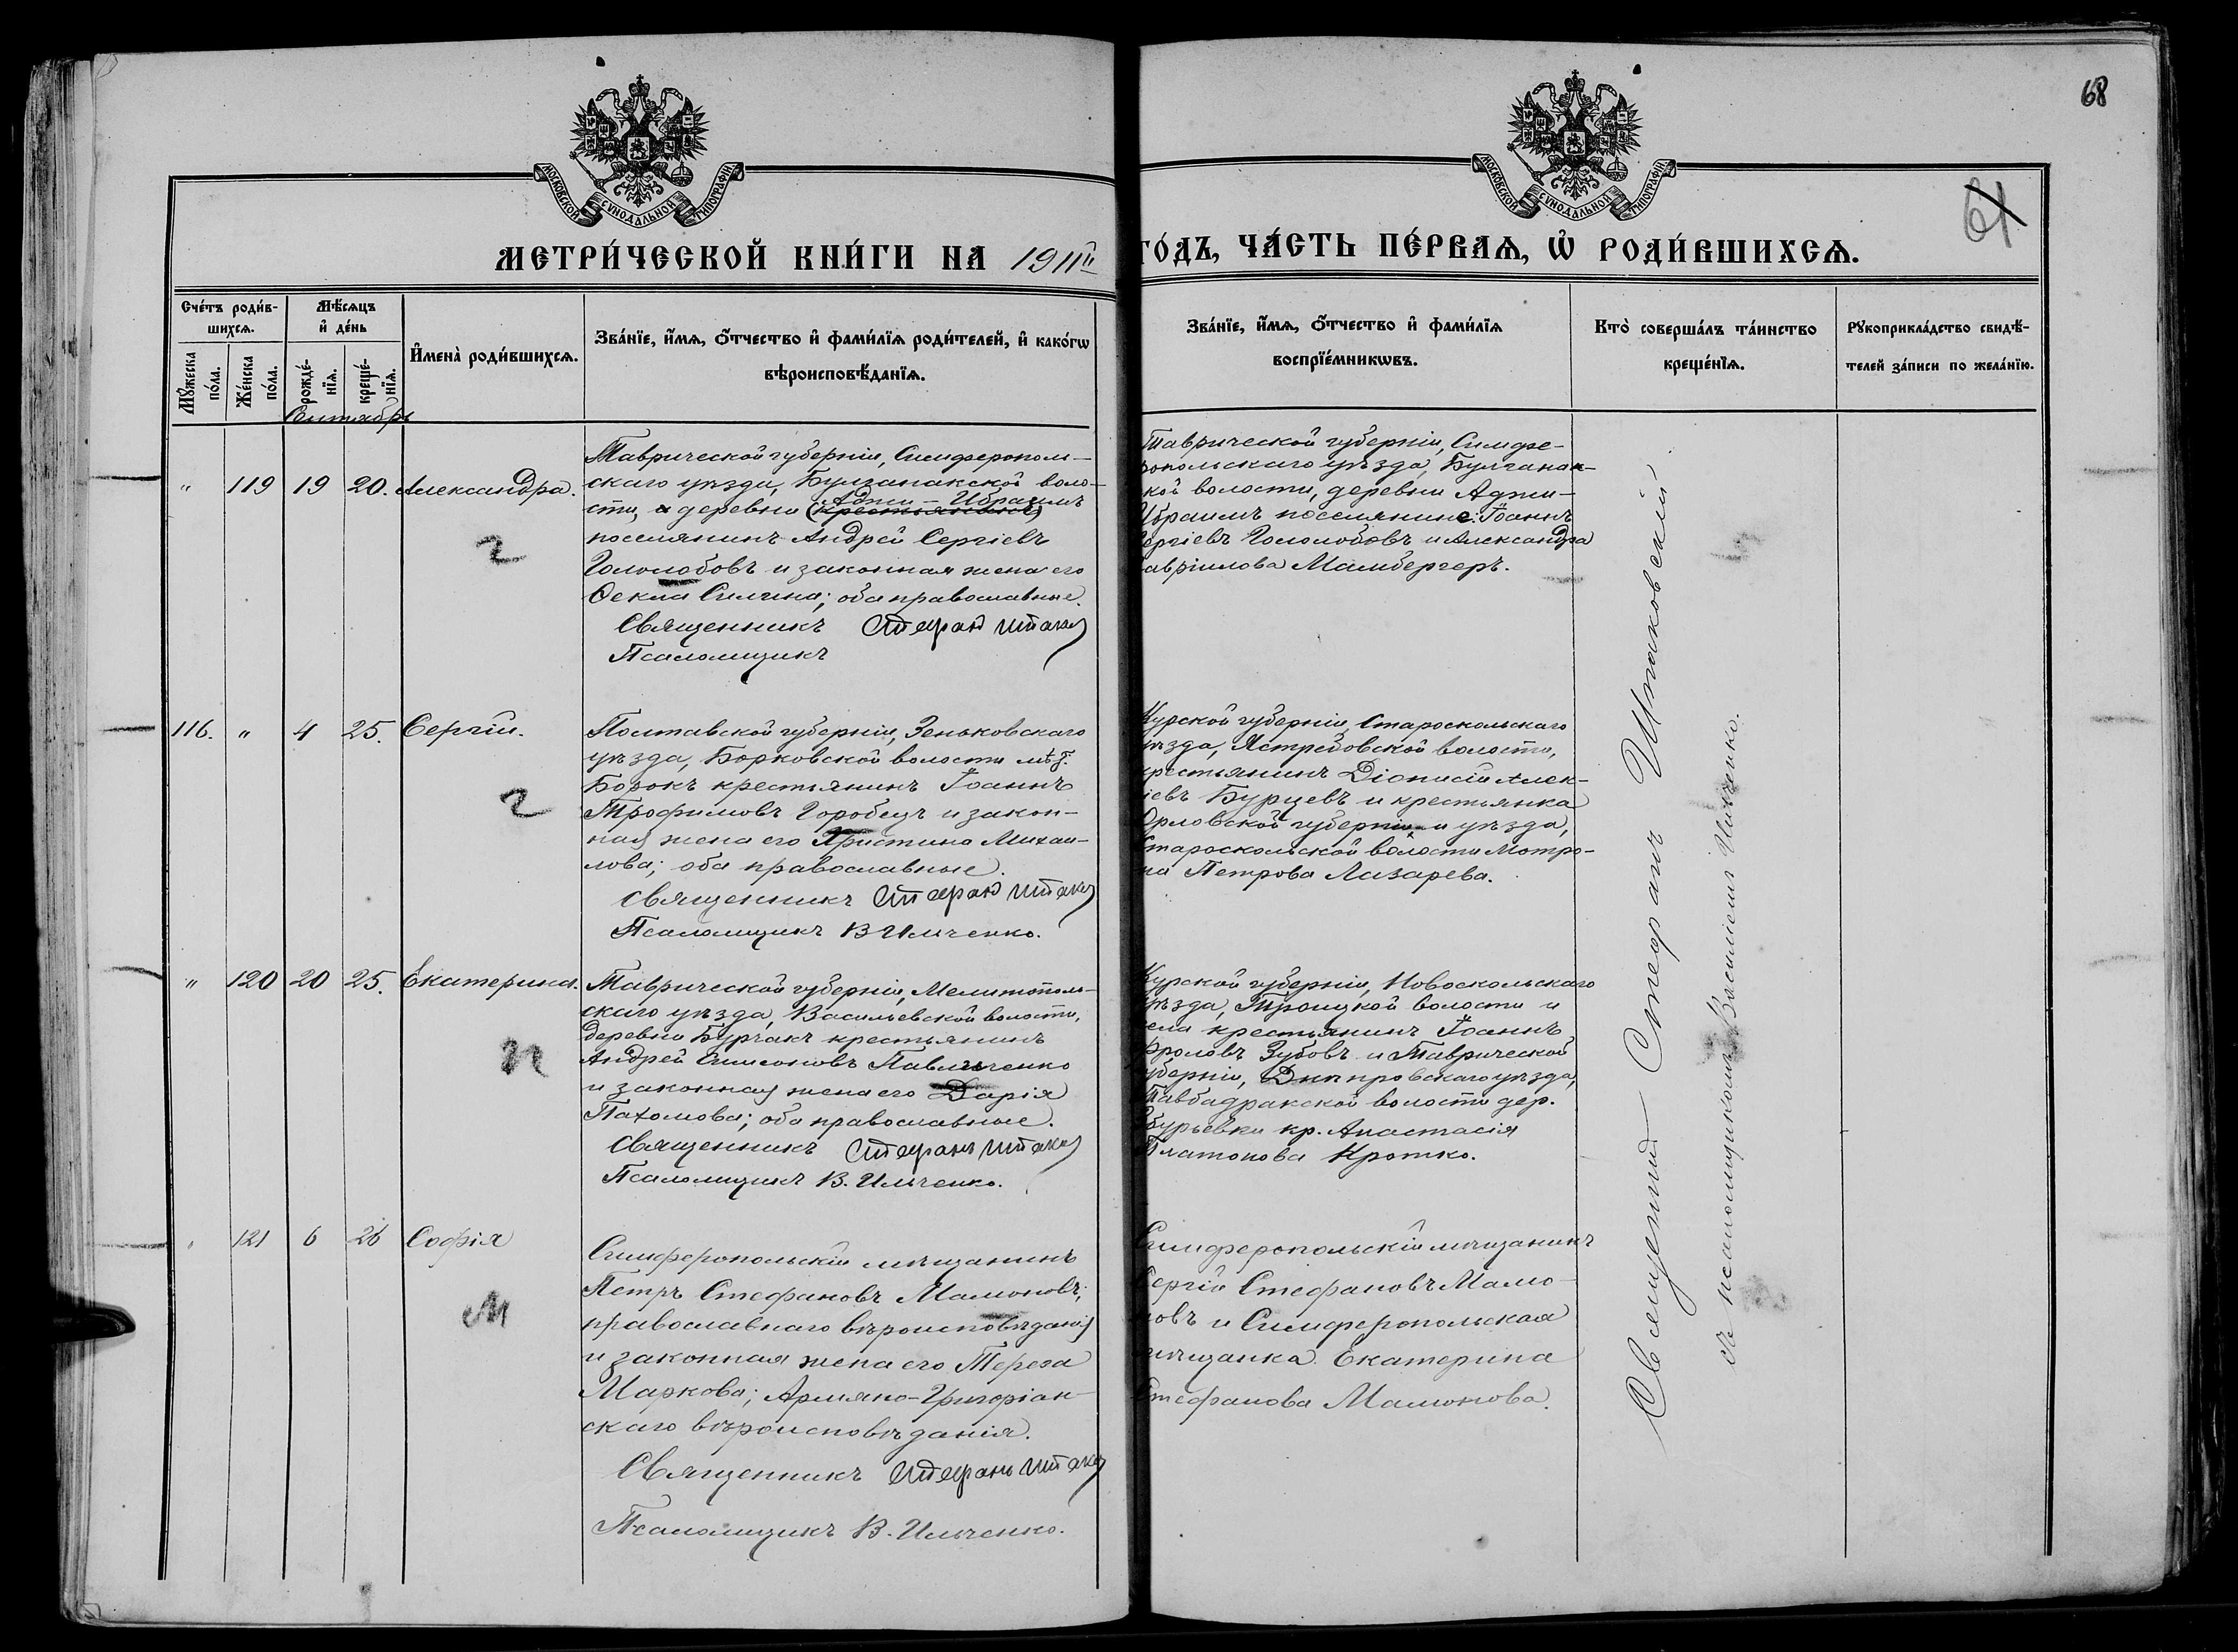 68
61
МОСКОВСКОЙ СѴНОДАЛЬНОЙ ТИПОГРАФІИ
МОСКОВСКОЙ СѴНОДАЛЬНОЙ ТИПОГРАФІИ
МЕТРИ́ЧЕСКОЙ КНИ́ГИ НА 1911й
ГО́ДЪ, ЧА́СТЬ ПЕ́РВАѦ, Ѡ҆ РОДИ́ВШИХСѦ.
Сче́тъ роди́в-
шихсѧ.
Мꙋ́жеска по́ла.
Же́нска по́ла.
Мѣ́сѧцъ
и҆ де́нь
рожде́-
нїѧ.
креще́-
нїѧ.
И҆мена̀ роди́вшихсѧ.
Зва́нїе, и҆́мѧ, о҆́тчество и҆ фами́лїѧ роди́телей, и҆ како́гѡ
вѣроисповѣ́данїѧ.
Зва́нїе, и҆́мѧ, о҆́тчество и҆ фами́лїѧ
воспрїе́мникѡвъ.
Кто̀ соверша́лъ та́инство
креще́нїѧ.
Рꙋкоприкла́дство свидѣ́-
телей за́писи по жела́нїю.
Сентябрь
" 119 19 20. Александра.
Таврической губерніи, Симферополь-
скаго уѣзда, Булганакской воло-
Аджи-Ибраимъ
сти, деревни (крестьянинъ)
поселянинъ Андрей Сергіевъ
Гололобовъ и законная жена его
Ѳекла Силина; оба православные.
Священникъ Стефанъ Штак
Псаломщикъ
Таврической губерніи, Симфе-
ропольскаго уѣзда, Булганак-
кой волости, деревни Аджи-
Ибраимъ поселяние: Іоаннъ
Сергіевъ Гололобовъ и Александра
авріилова Мамбергеръ.
г
116. " 4 25. Сергій.
Полтавской губерніи, Зеньковскаго
уѣзда, Борковской волости мѣ
Борокъ крестьянинъ Іоаннъ
Трофимовъ Горобецъ и закон-
ная жена его Христина Михаи-
лова; оба православные.
Священникъ Стефанъ Штак
Псаломщикъ В Ильченко.
Курской губерніи, Старооскольскаго
уѣзда, Ястребовской волости,
крестьянинъ Діонисій Алек-
іевъ Бурцевъ и крестьянка
Орловской губерніи и уѣзда,
Старооскольской волости Мотро-
на Петрова Лазарева.
г
" 120 20 25. Екатерина.
Таврической губерніи, Мелитополь-
скаго уѣзда, Васильевской волости,
деревни Бурчакъ крестьянинъ
Андрей Симеоновъ Павличенко
и законная жена его Дарія
Пахомова; оба православные.
Священникъ Стефанъ Штак
Псаломщикъ В. Ильченко.
Курской губерніи, Новооскольскаго
уѣзда, Троицкой волости и
села крестьянинъ Іоаннъ
Фроловъ Зубовъ и Таврической
губерніи, Днѣпровскаго уѣзда,
волости дер.
Збурьевки кр. Анастасія
Платонова Кротко.
п
" 121 6 26 Софія
Симферопольскій мѣщанинъ
Петръ Стефановъ Мамоновъ;
православнаго вѣроисповѣданія
и законная жена его Тереза
Маркова; Армяно-Григоріан-
скаго вѣроисповѣданія.
Священникъ Стефанъ Штак
Псаломщикъ В. Ильченко.
Симферопольскій мѣщанинъ
Сергій Стефановъ Мамо-
новъ и Симферопольская
мѣщанка Екатерина
Стефанова Мамонова.
м
Священникъ Стефанъ Штаковскій
съ псаломщикомъ Василіемъ Ильченко.